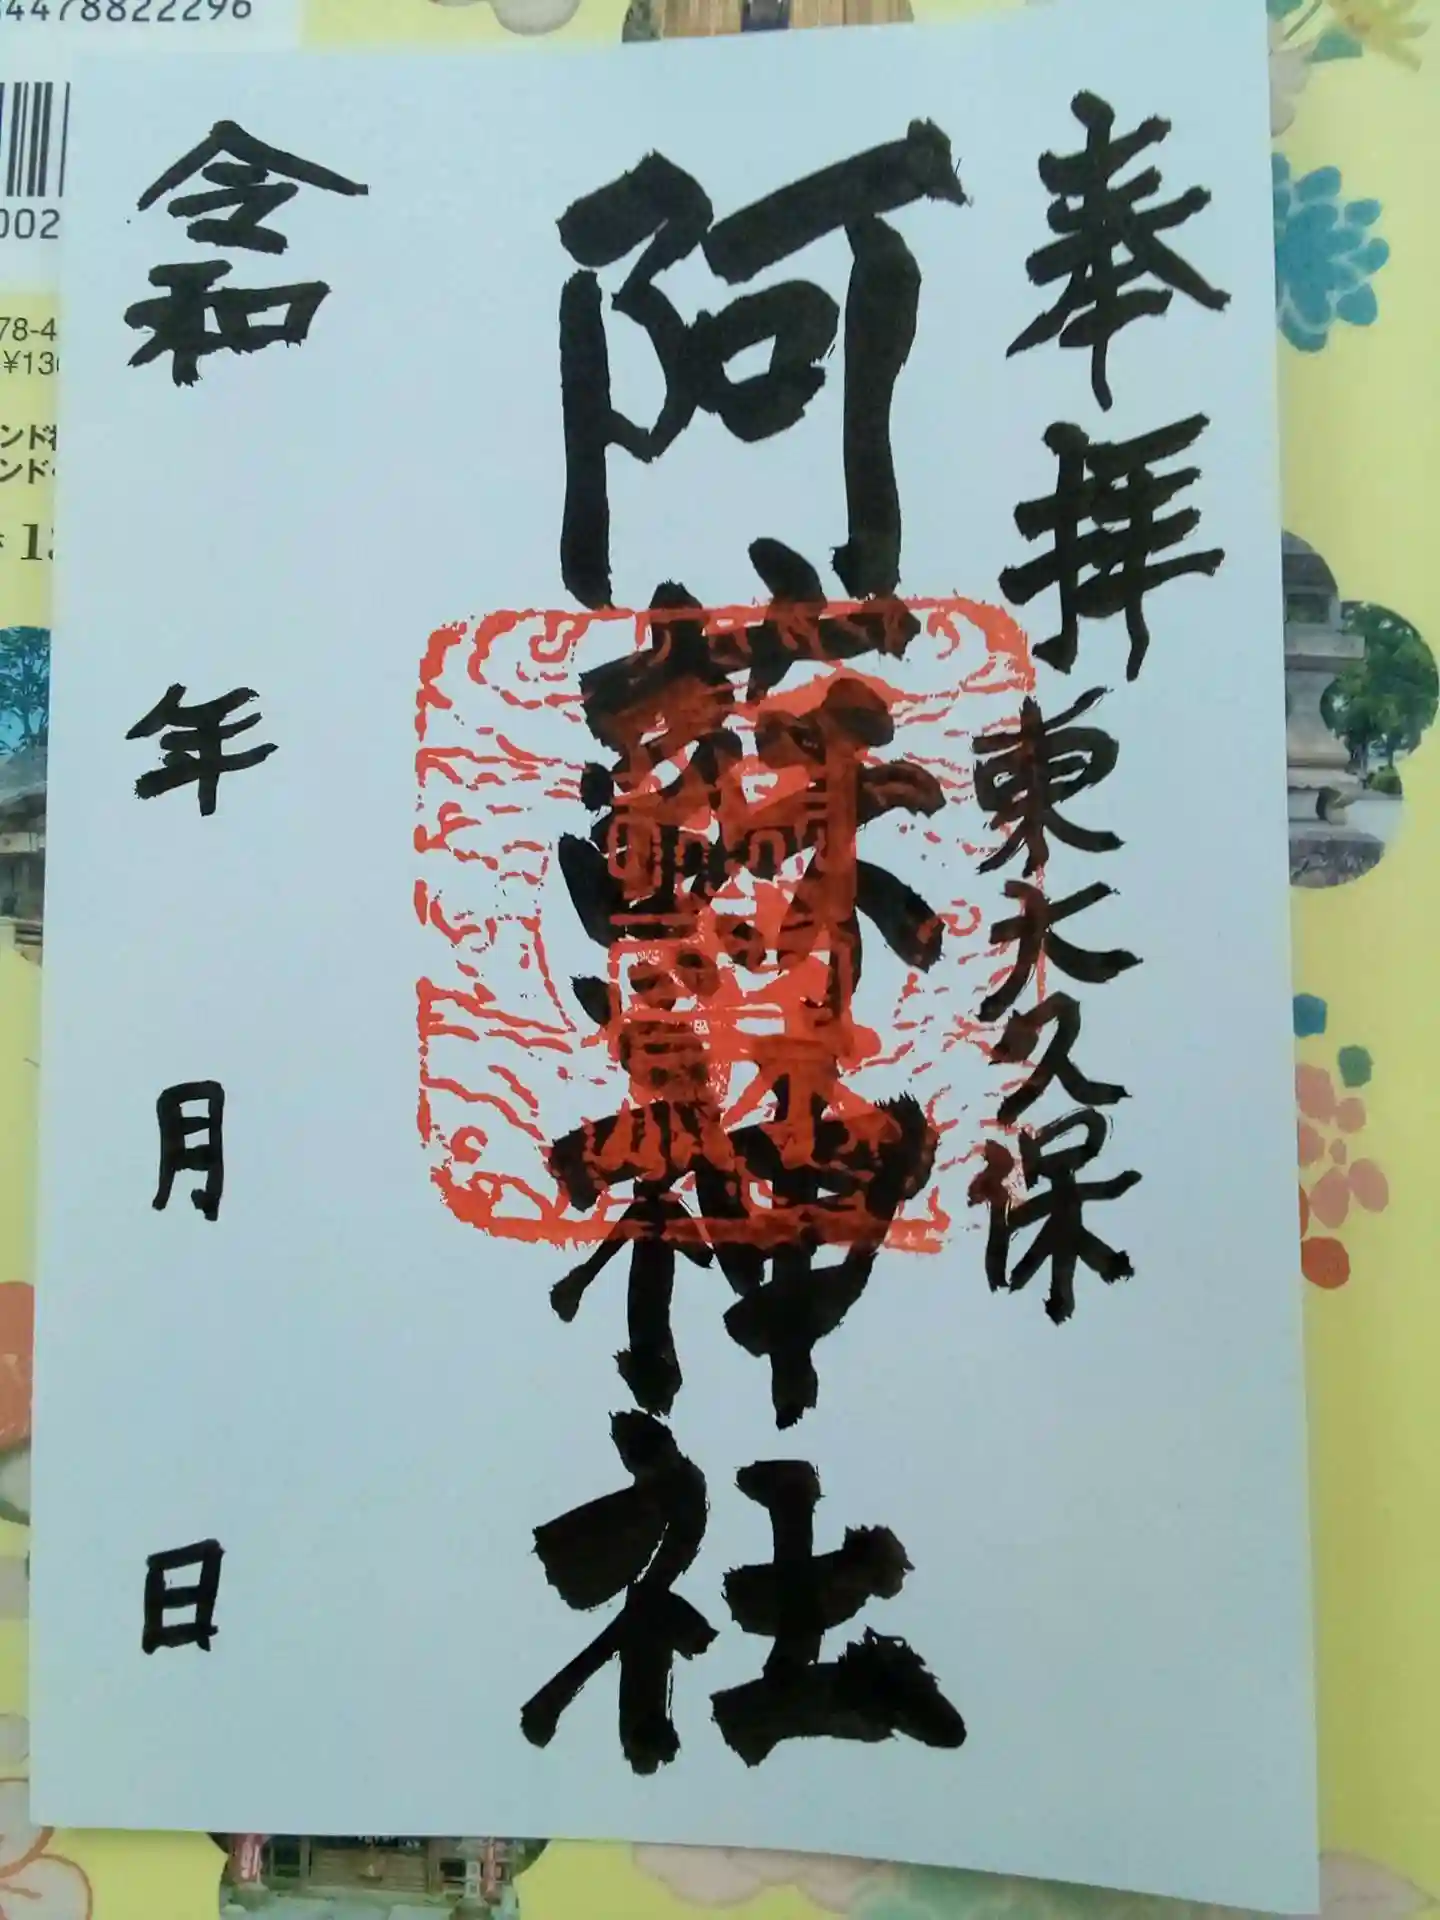 奉拝
東大久保
阿蘇神社
令和 年 月 日
4478822296
002
78-4
¥130
ンド
ンド